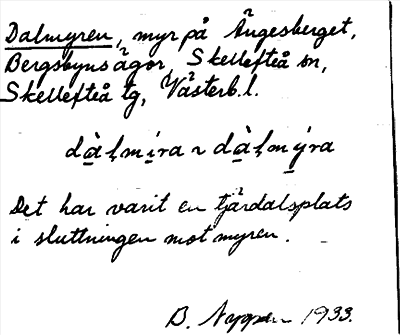 Dalmyren, myr på Ängesberget,
Bergsbyns ägor, Skellefteå sn,
Skellefteå tg, Västerb. l.
dà̱ḷmi̱ra ~ dà̱ḷmý̱ra
Det har varit en tjärdalsplats
i sluttningen mot myren.
B. 1933.